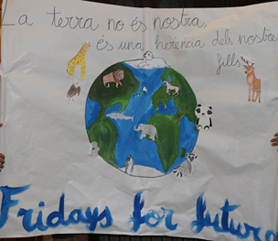 La terra no és nostra,
és una herència dels nostres
fills
Fridays for future